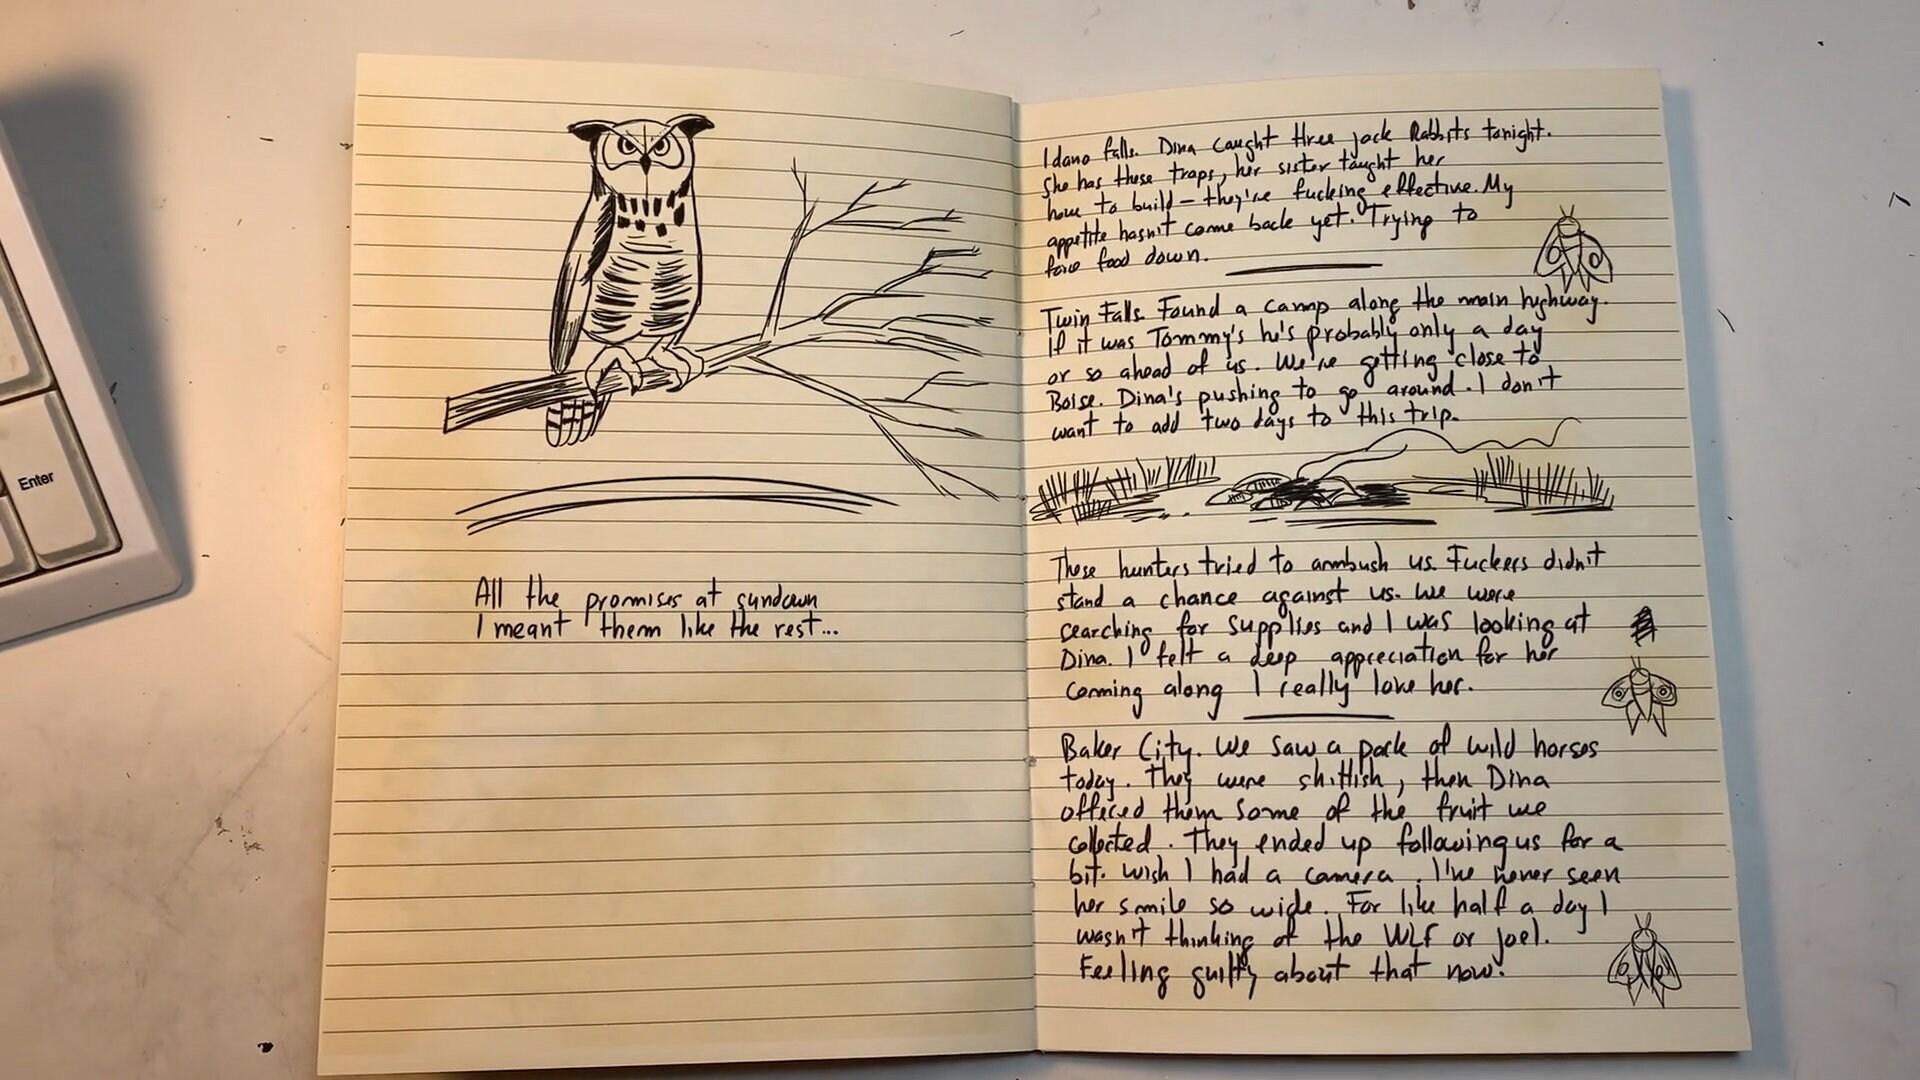 Enter
All the promises at sundown
I meant them like the rest...
Idano falls. Dina caught three jack Rabbits tonight.
She has these traps, her sister taught her
how to build — they're fucking effective. My
appetite hasn't come back yet. Trying to
force food down.
Twin Falls. Found a camp along the main highway.
If it was Tommy's he's probably only a day
or so ahead of us. We're getting close to
Boise. Dina's pushing to go around. I don't
want to add two days to this trip.
These hunters tried to ambush us. Fuckers didn't
stand a chance against us. We were
searching for supplies and I was looking at
Dina. I felt a deep appreciation for her
comming along I really love her.
Baker City. We saw a pack of wild horses
today. They were shittish, then Dina
offered them some of the fruit we
collected. They ended up following us for a
bit. Wish I had a camera. I've never seen
her smile so wide. For like half a day I
wasn't thinking of the WLF or Joel.
Feeling guilty about that now.